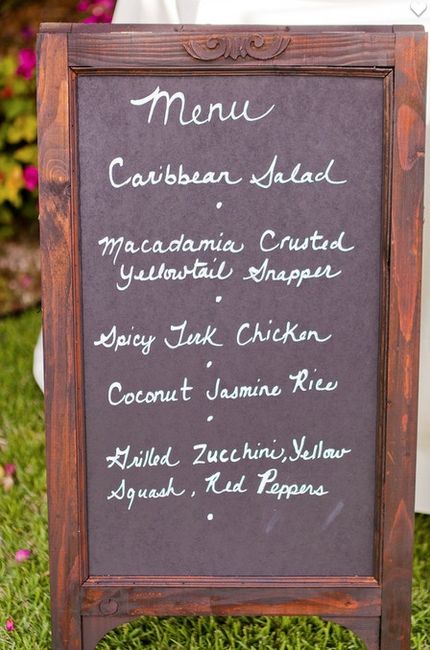 Menu
Caribbean Salad
Macadamia Crusted
Yellowtail Snapper
Spicy Jerk Chicken
Coconut Jasmine Rice
Grilled Zucchini, Yellow
Squash, Red Peppers